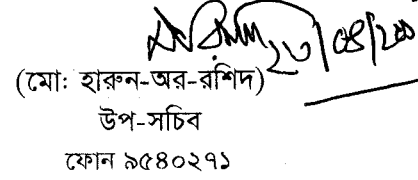 ২৩/০৪/২০০
(মোঃ হারুন-অর-রশিদ)
উপ-সচিব
ফোন ৯৫৪০২৭১